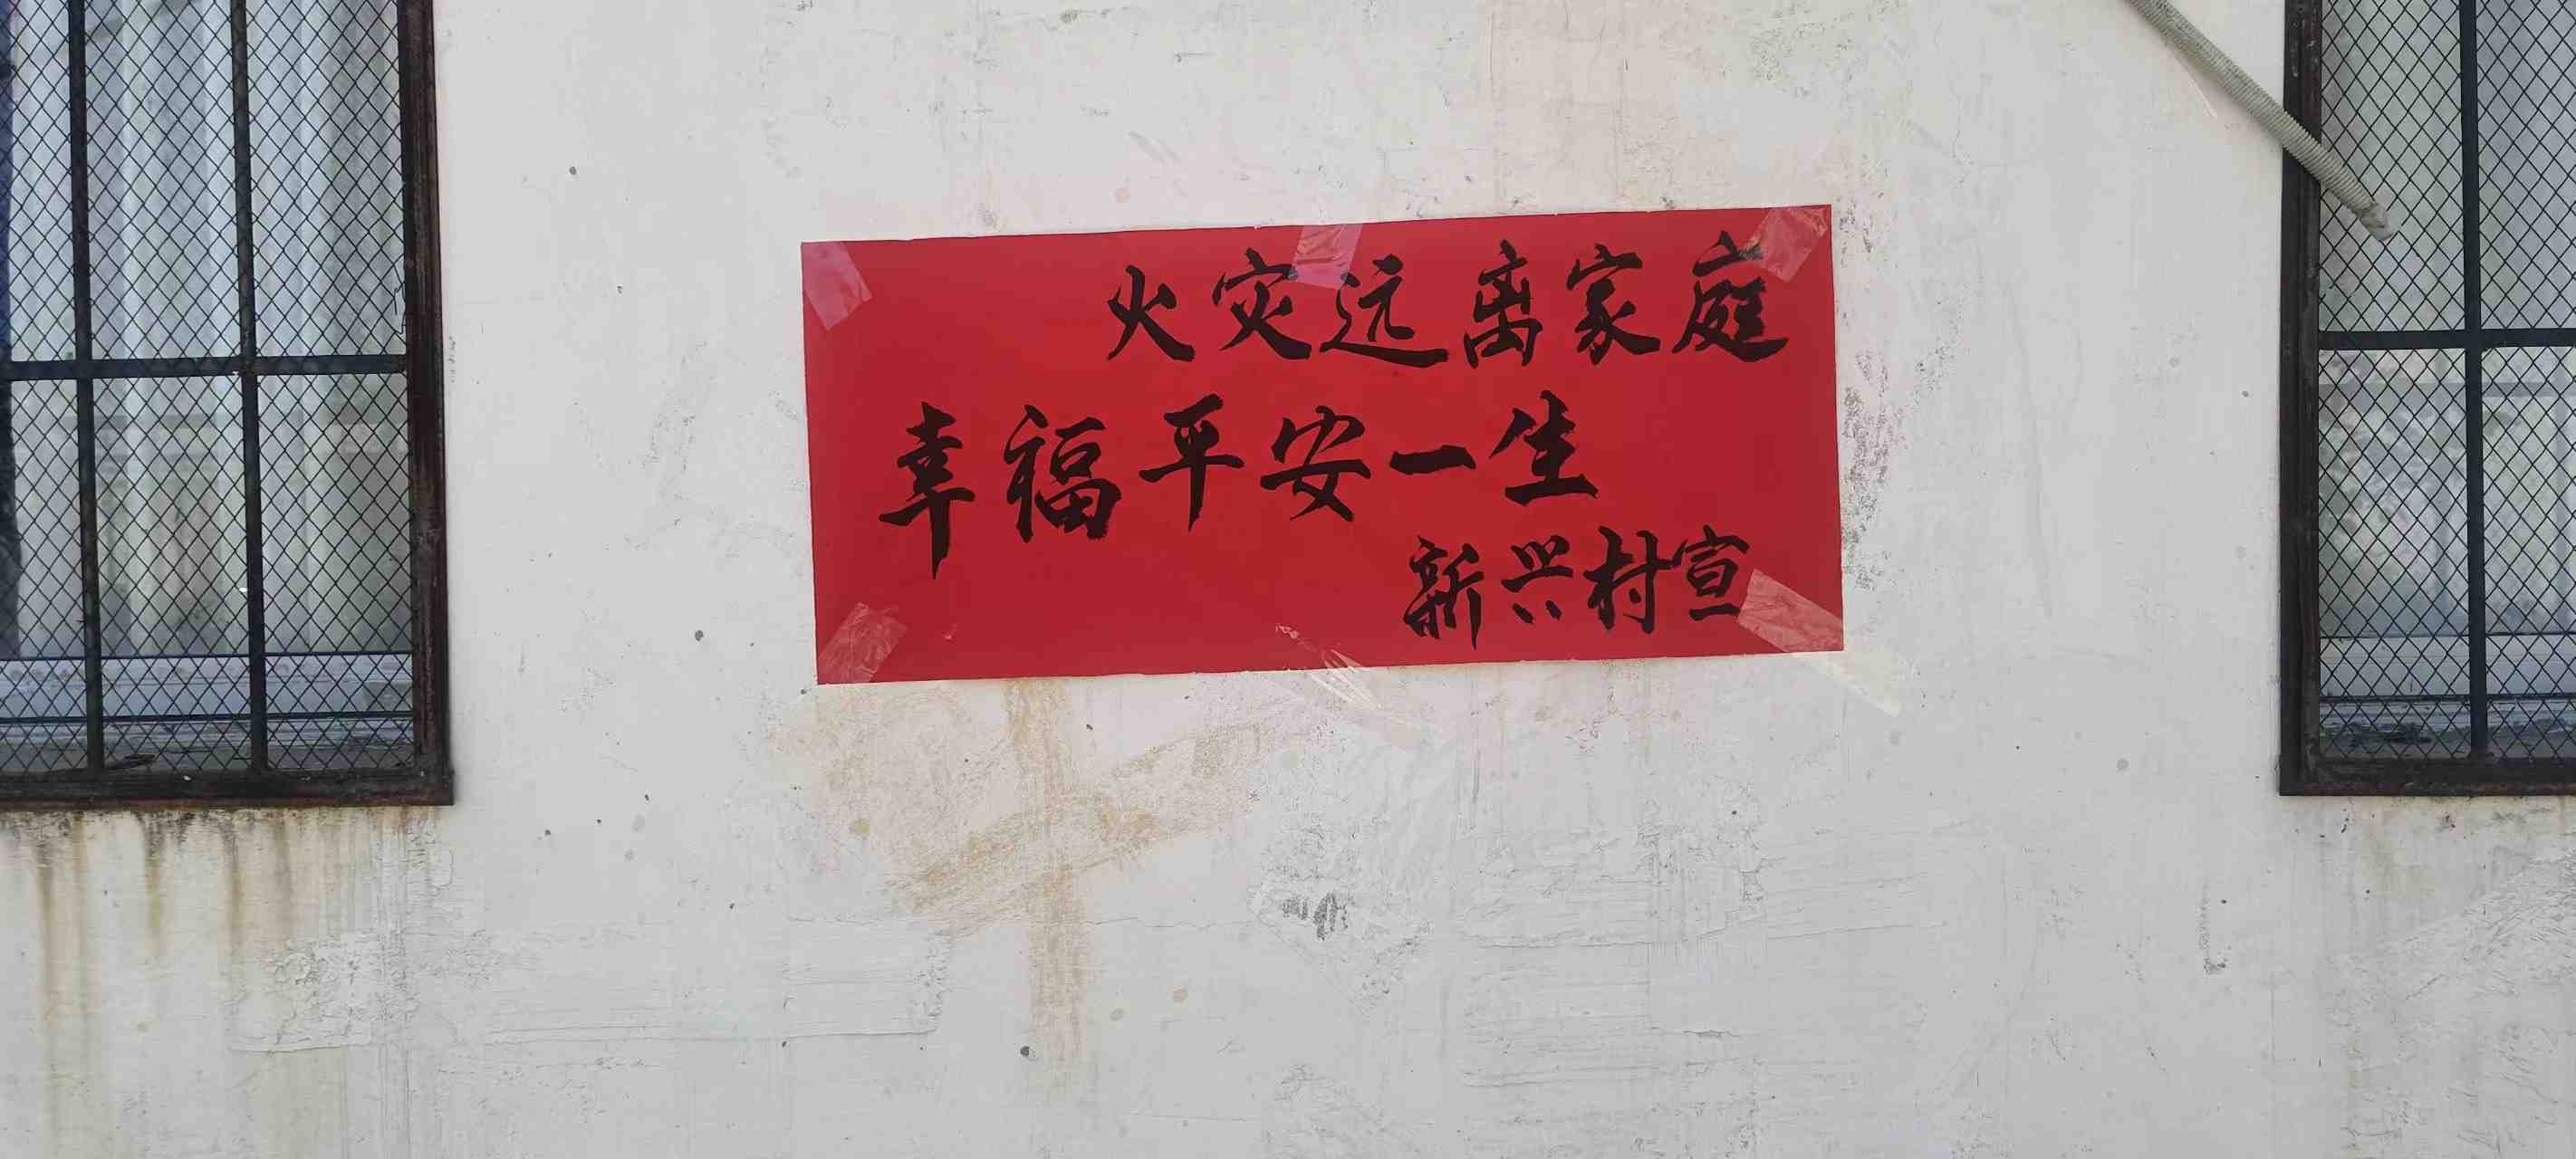 火灾远离家庭
幸福平安一生
新兴村宣